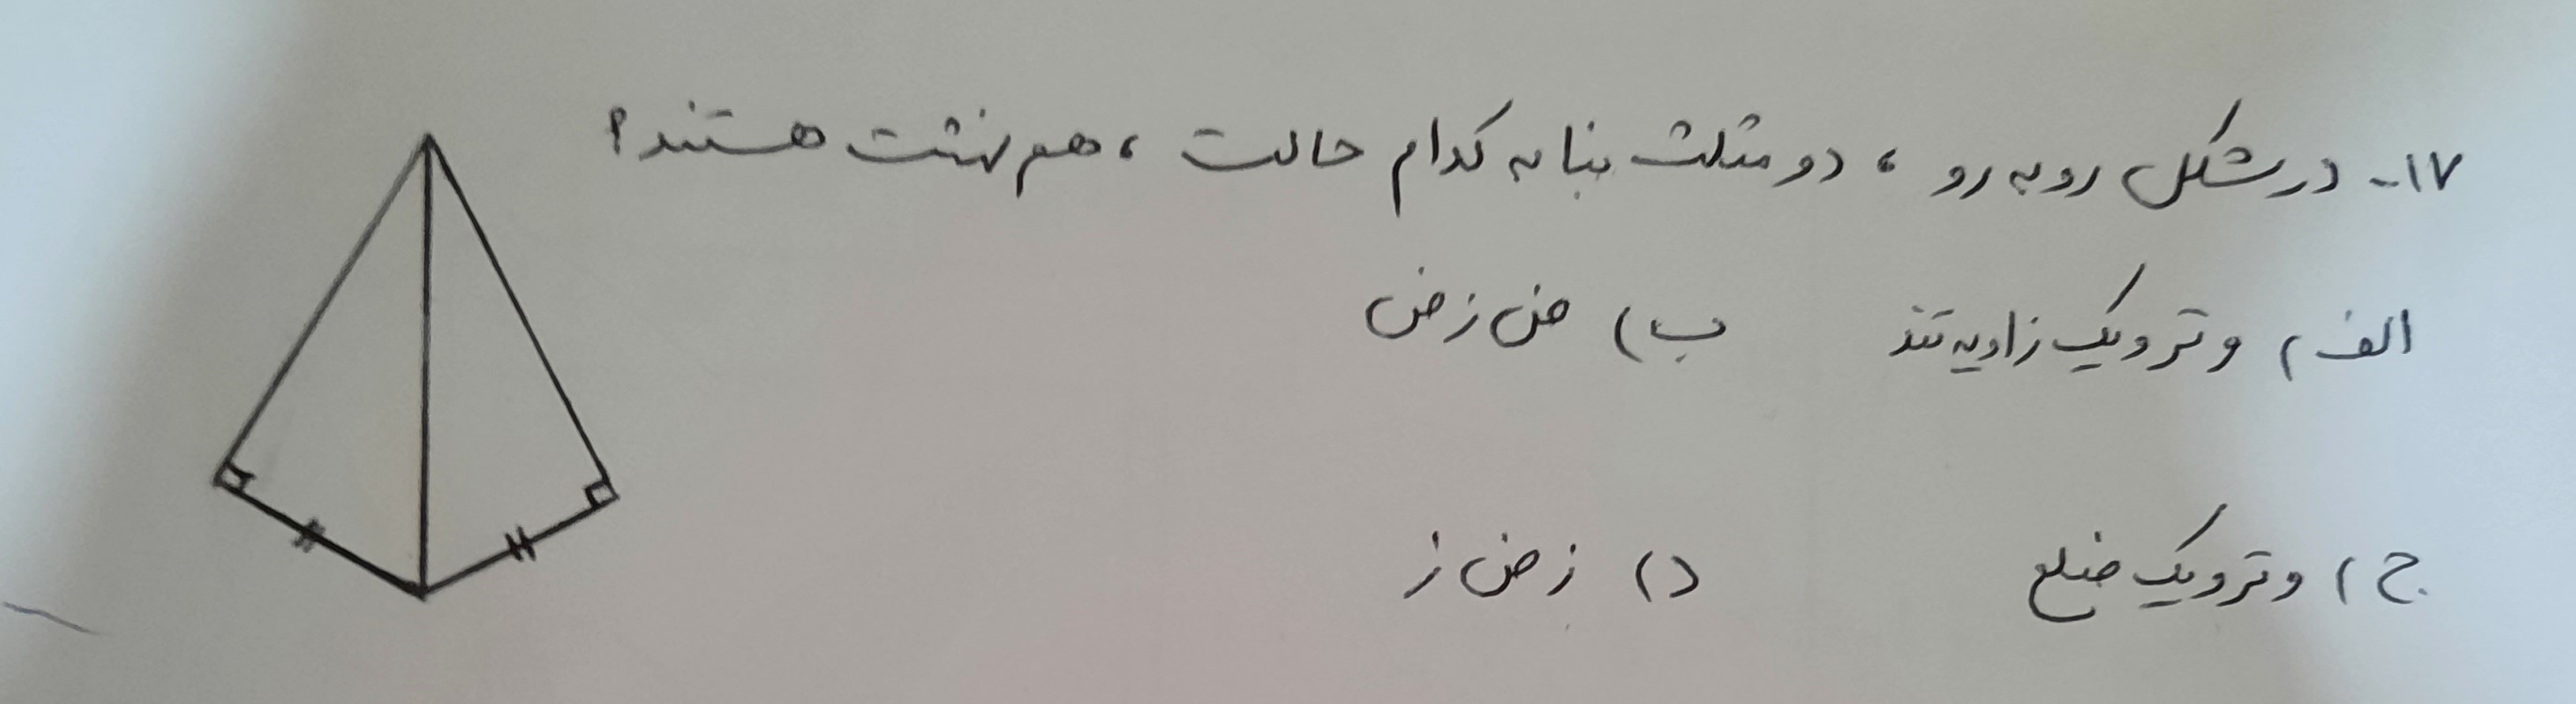 ۱۷- در شکل روبه رو ، دو مثلث بنا به کدام حالت ، هم نهشت هستند؟
الف) وتر و یک زاویه تند ب) ض ز ض
ج) وتر و یک ضلع د) ز ض ز